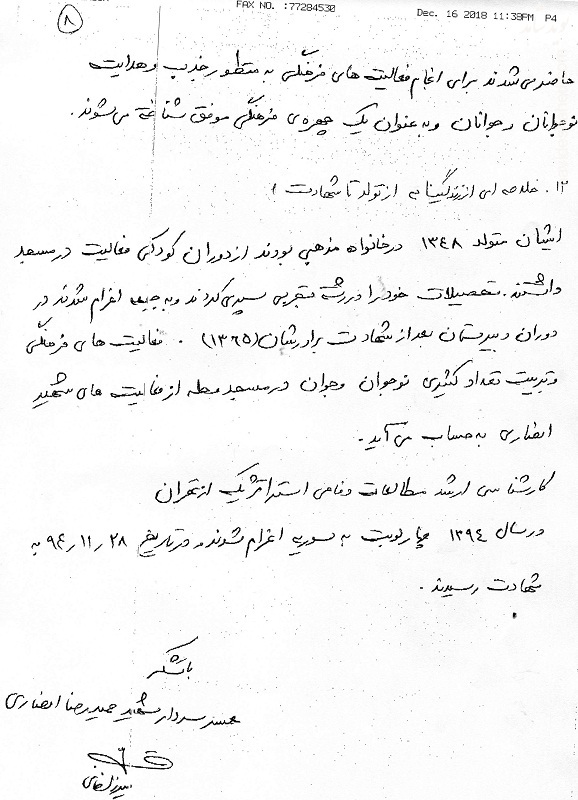 FAX NO. :77284530 Dec. 16 2018 11:38PM P4
۸
حاضر می شدند برای انجام فعالیت های فرهنگی به منظور جذب و هدایت
نوجوانان و جوانان و به عنوان یک چهره ی فرهنگی موفق شناخته می شوند.
۱۲. خلاصه ای از زندگینامه از تولد تا شهادت )
ایشان متولد ۱۳۴۸ در خانواده مذهبی بودند از دوران کودکی فعالیت در مسجد
داشتند. تحصیلات خود را در رشته تجربی سپری کردند و به جبهه اعزام شدند در
دوران دبیرستان بعد از شهادت برادرشان (۱۳۶۵) . فعالیت های فرهنگی
و تربیت تعداد کثیری نوجوان و جوان در مسجد محله از فعالیت های شهید
انصاری به حساب می آید.
کارشناسی ارشد مطالعات دفاعی استراتژیک از تهران
در سال ۱۳۹۴ چهار نوبت به سوریه اعزام شدند و در تاریخ ۲۸ ر ۱۱ ر ۹۴ به
شهادت رسیدند.
باتشکر
همسر سردار شهید حمیدرضا انصاری